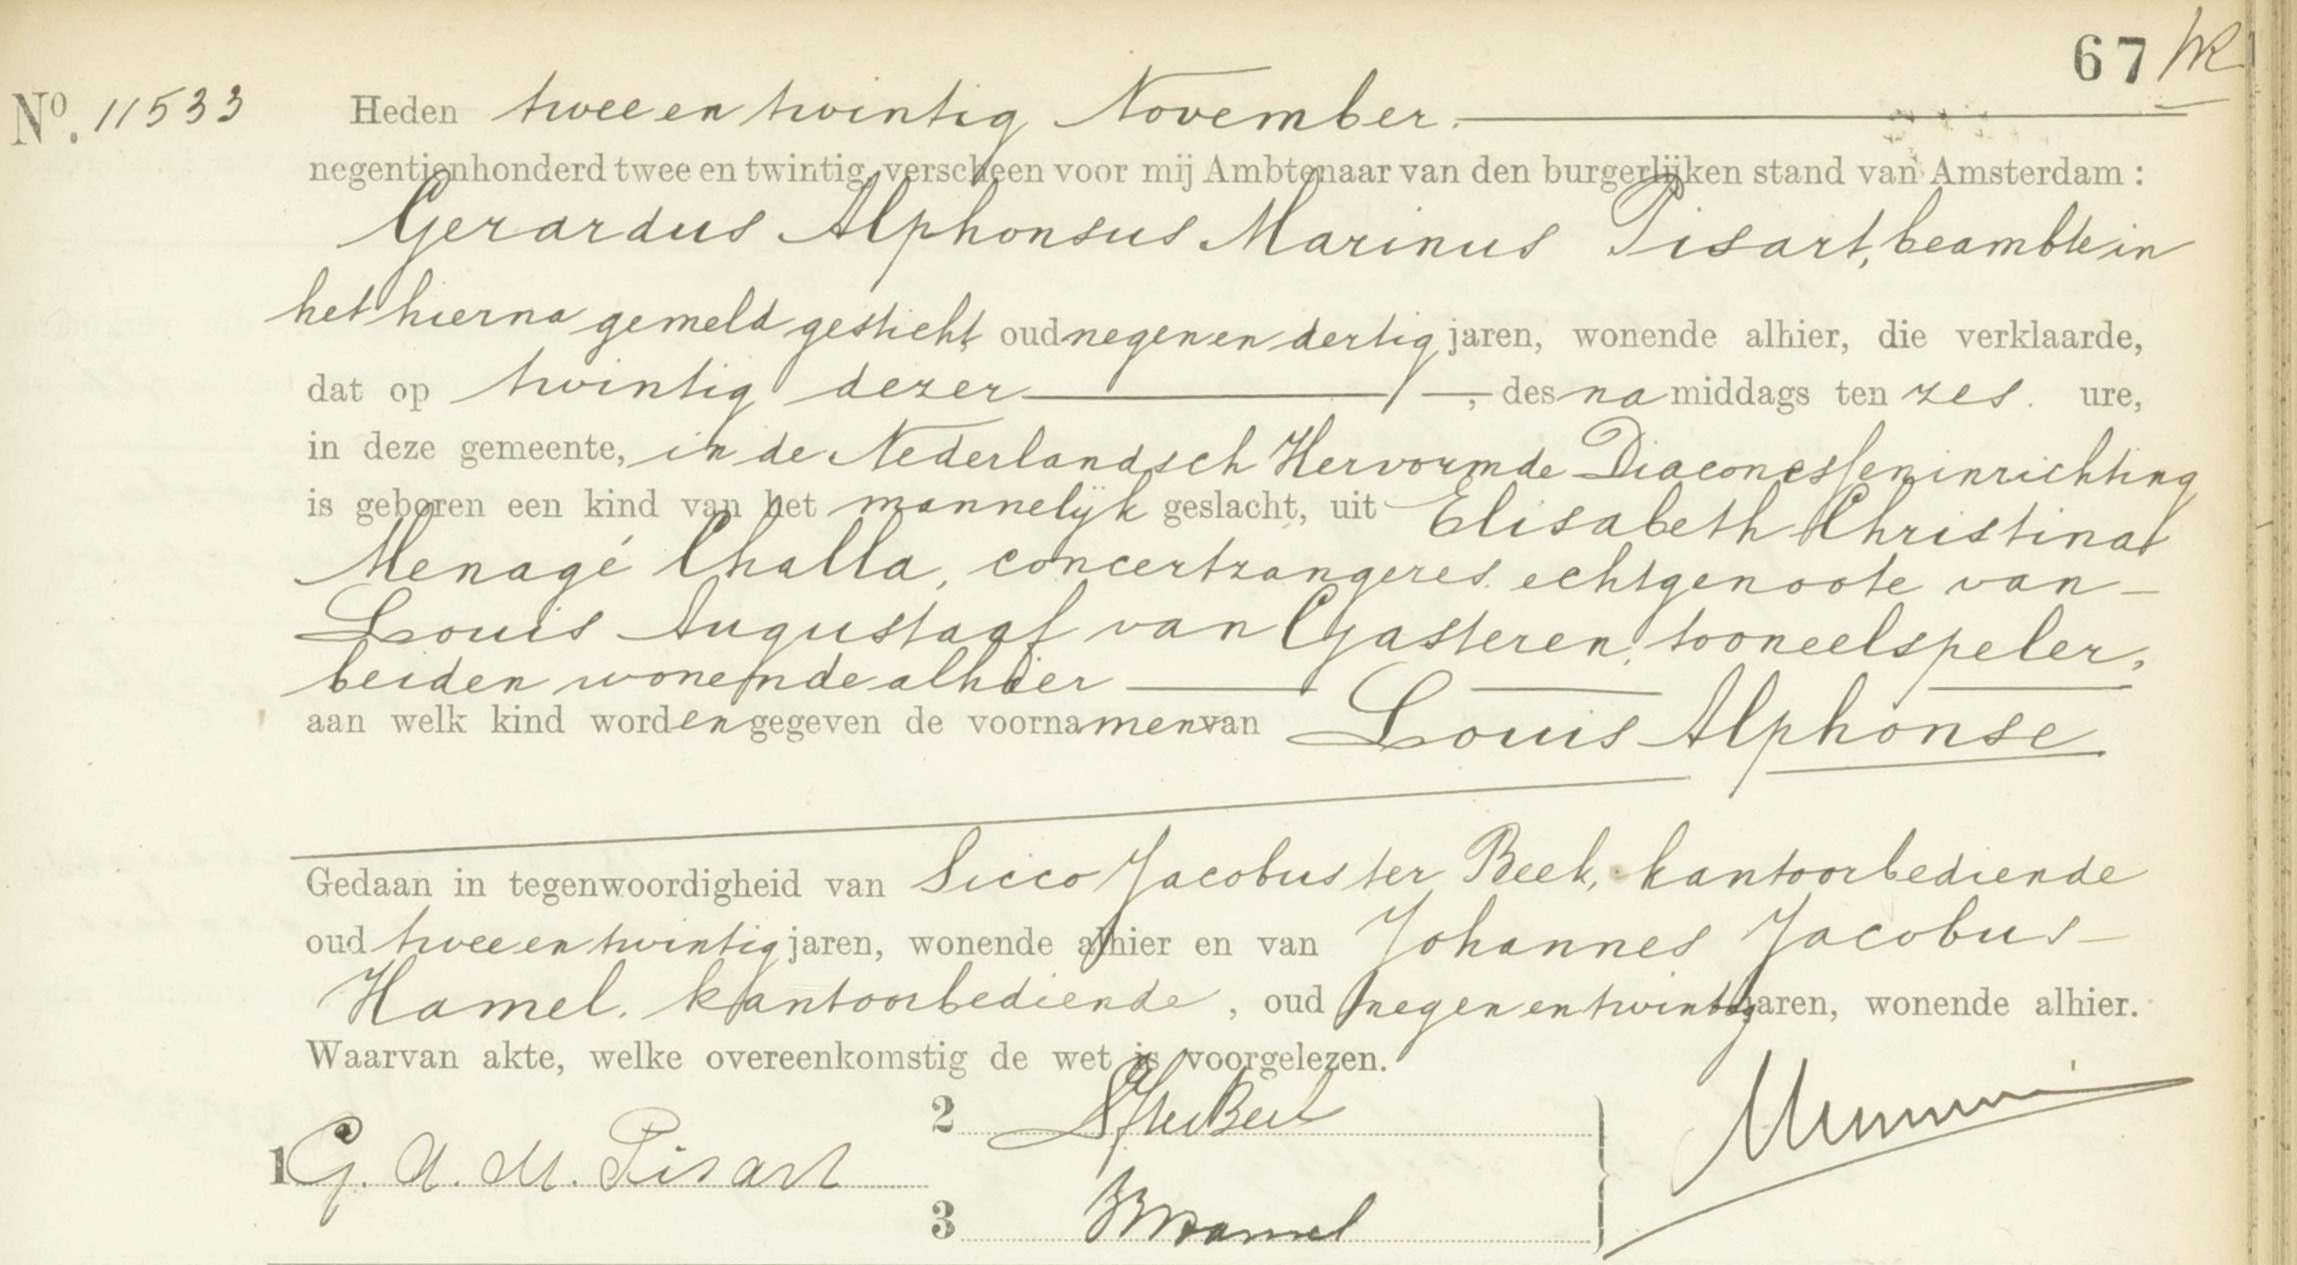 67
No. 11533 Heden twee en twintig November.
negentienhonderd twee en twintig, verscheen voor mij Ambtenaar van den burgerlijken stand van Amsterdam :
Gerardus Alphonsus Marinus Pisart, beambte in
het hierna gemeld gesticht, oud negen en dertig jaren, wonende alhier, die verklaarde,
dat op twintig dezer, des namiddags ten zes ure,
in deze gemeente, in de Nederlandsch Hervormde Diaconesseninrichting
is geboren een kind van het mannelijk geslacht, uit Elisabeth Christina
Menagé Challa, concertzangeres, echtgenoote van
Louis Augustaaf van Gasteren, tooneelspeler,
beiden wonende alhier
aan welk kind worden gegeven de voornamen van Louis Alphonse
Gedaan in tegenwoordigheid van Sicco Jacobus ter Beek, kantoorbediende
oud twee en twintig jaren, wonende alhier en van Johannes Jacobus
Hamel, kantoorbediende, oud negen en twintig jaren, wonende alhier.
Waarvan akte, welke overeenkomstig de wet is voorgelezen.
1 G. A. M. Pisart
2 SJterBeek
3 JJHamel